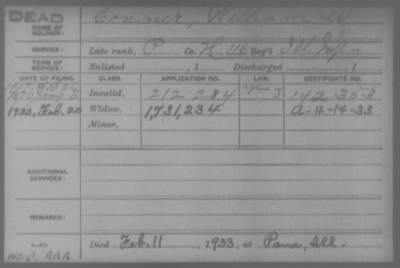 DEAD
NAME OF SOLDIER: Conner, William W
SERVICE: Late rank, P Co. H, 116 Reg't Ill. Inf.
TERM OF SERVICE: Enlisted , 1 Discharged , 1
DATE OF FILING. CLASS. APPLICATION NO. LAW. CERTIFICATE NO.
Invalid, 212 284 J 142 353
1933, Feb. 20 Widow, 1,731,234 A-4-14-33
Minor,
ADDITIONAL SERVICES:
REMARKS:
Died Feb. 11 , 1933, at Pana, Ill.